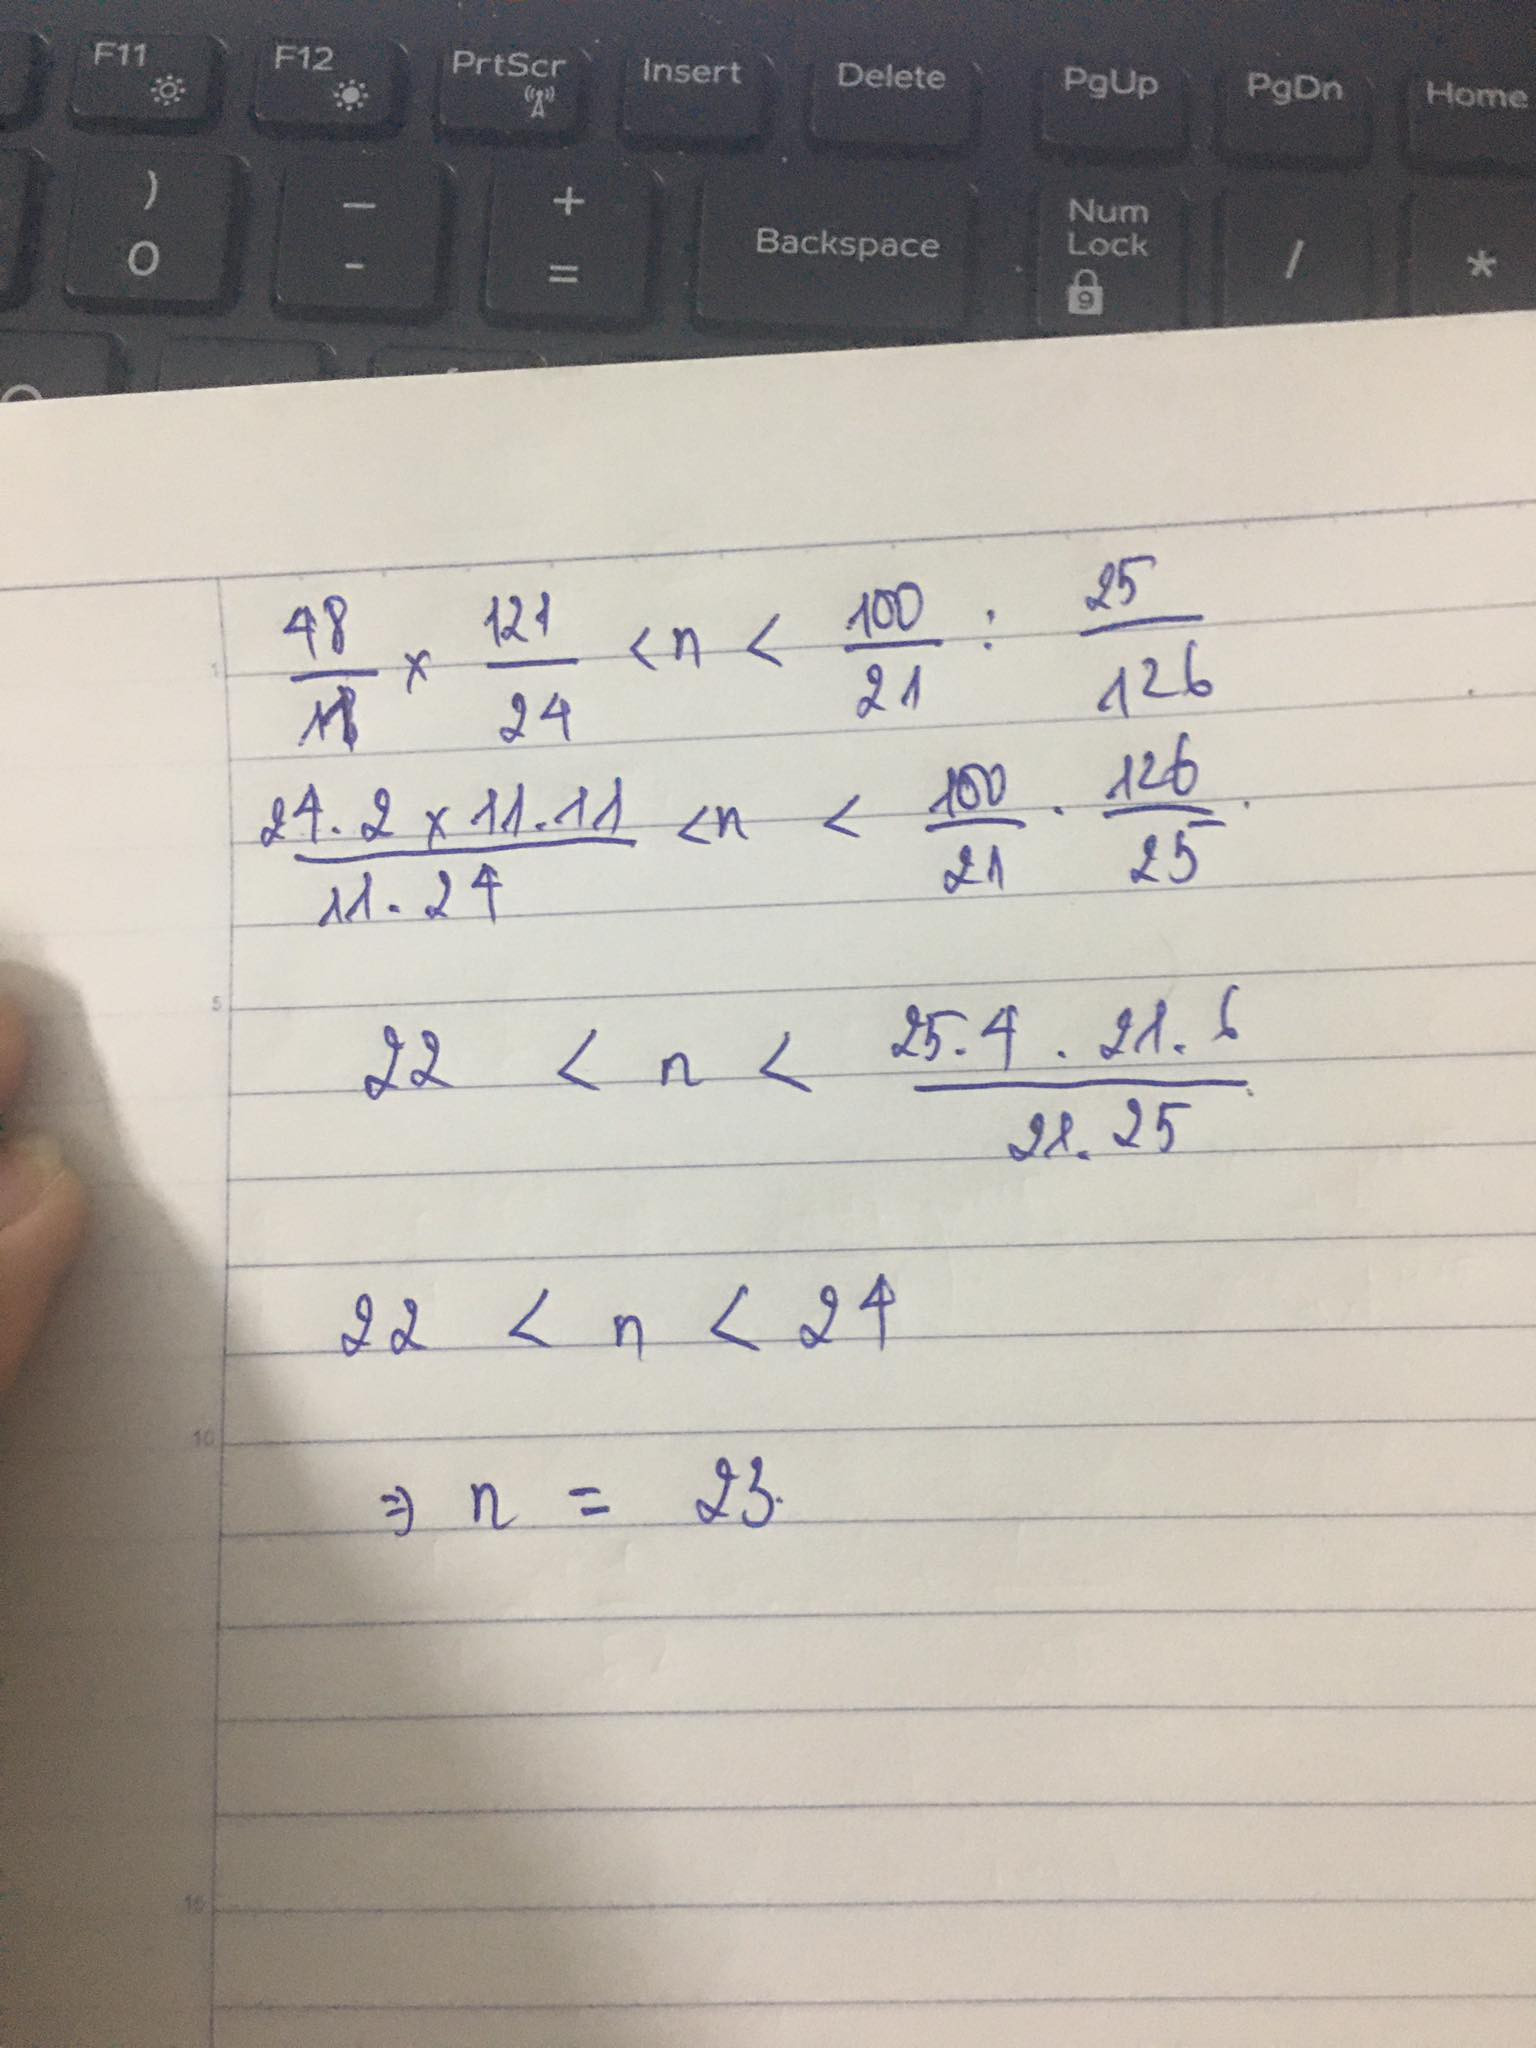 F11 F12 PrtScr Insert Delete PgUp PgDn Home
) _ + Backspace Num Lock / *
0 - = 9
48/11 x 121/24 < n < 100/21 : 25/126
24.2 x 11.11/11.24 < n < 100/21 . 126/25
22 < n < 25.4 . 21.6/21.25
22 < n < 24
⇒ n = 23.
1
5
10
15